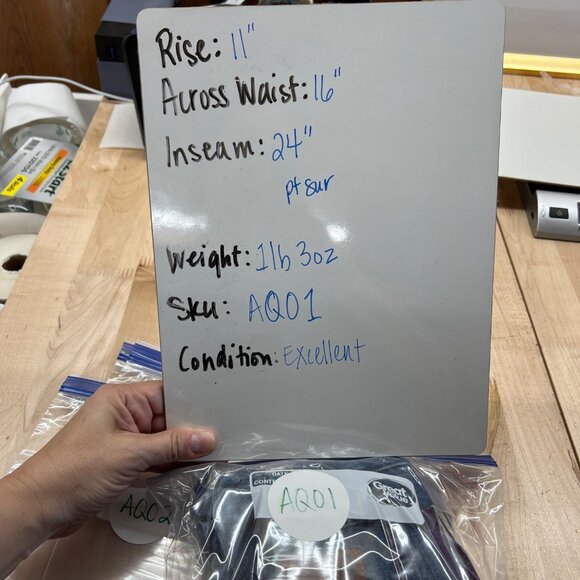 Rise: 11"
Across Waist: 16"
Inseam: 24"
pt sur
Weight: 1lb 3oz
Sku: AQ01
Condition: Excellent
AQ02
AQ01
Great Value